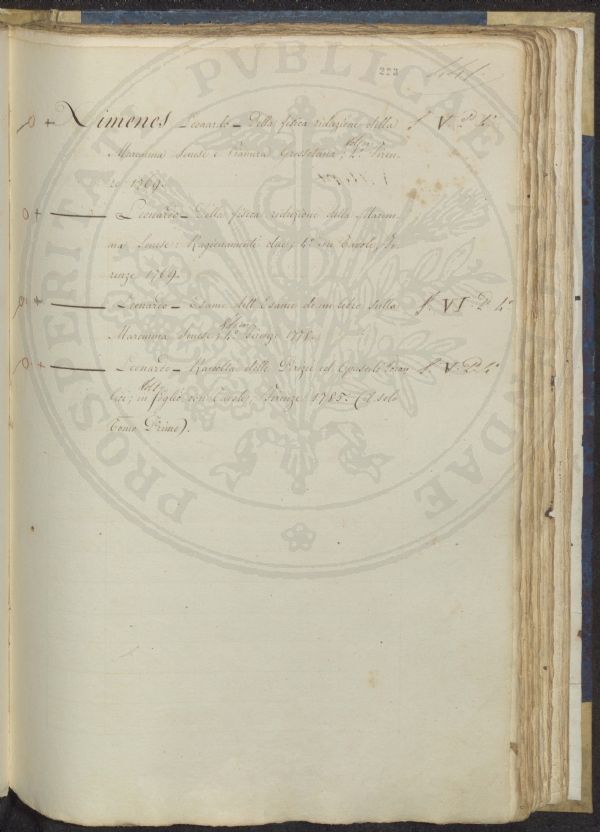 223
Ximenes Leonardo – Della fisica riduzione della f. V. P. 4°
Maremma Senese e Pianura Grossetana, 4° Firen-
ze 1769.
Leonardo – Della fisica riduzione della Marem-
ma Senese: Ragionamenti due, 4° con Tavole, Fi-
renze 1769.
Leonardo – Esame dell'Esame di un libro sulla f. VI. P. 4°
Maremma Senese, 4° Firenze 1775.
Leonardo – Raccolta delle Perizie ed Opuscoli Idrau- f. V. P. 4°
lici; in foglio con Tavole, Firenze 1785. (il solo
Tomo Primo).
PUBLICAE
PROSPERITATI